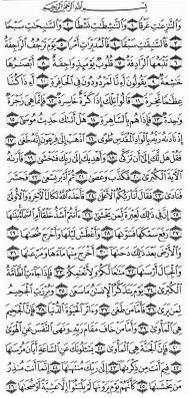 بسم الله الرحمن الرحيم
والنازعات غرقا ١ والناشطات نشطا ٢ والسابحات سبحا
٣ فالسابقات سبقا ٤ فالمدبرات أمرا ٥ يوم ترجف الراجفة
٦ تتبعها الرادفة ٧ قلوب يومئذ واجفة ٨ أبصارها
خاشعة ٩ يقولون أءنا لمردودون في الحافرة ١٠ أءذا كنا
عظاما نخرة ١١ قالوا تلك إذا كرة خاسرة ١٢ فإنما هي زجرة
واحدة ١٣ فإذا هم بالساهرة ١٤ هل أتاك حديث موسى
١٥ إذ ناداه ربه بالواد المقدس طوى ١٦ اذهب إلى فرعون إنه طغى ١٧
فقل هل لك إلى أن تزكى ١٨ وأهديك إلى ربك فتخشى ١٩ فأراه
الآية الكبرى ٢٠ فكذب وعصى ٢١ ثم أدبر يسعى ٢٢ فحشر
فنادى ٢٣ فقال أنا ربكم الأعلى ٢٤ فأخذه الله نكال الآخرة والأولى
٢٥ إن في ذلك لعبرة لمن يخشى ٢٦ ءأنتم أشد خلقا أم السماء بناها
٢٧ رفع سمكها فسواها ٢٨ وأغطش ليلها وأخرج ضحاها ٢٩
والأرض بعد ذلك دحاها ٣٠ أخرج منها ماءها ومرعاها ٣١
والجبال أرساها ٣٢ متاعا لكم ولأنعامكم ٣٣ فإذا جاءت الطامة
الكبرى ٣٤ يوم يتذكر الإنسان ما سعى ٣٥ وبرزت الجحيم
لمن يرى ٣٦ فأما من طغى ٣٧ وآثر الحياة الدنيا ٣٨ فإن الجحيم
هي المأوى ٣٩ وأما من خاف مقام ربه ونهى النفس عن الهوى
٤٠ فإن الجنة هي المأوى ٤١ يسألونك عن الساعة أيان مرساها
٤٢ فيم أنت من ذكراها ٤٣ إلى ربك منتهاها ٤٤ إنما أنت منذر
من يخشاها ٤٥ كأنهم يوم يرونها لم يلبثوا إلا عشية أو ضحاها ٤٦